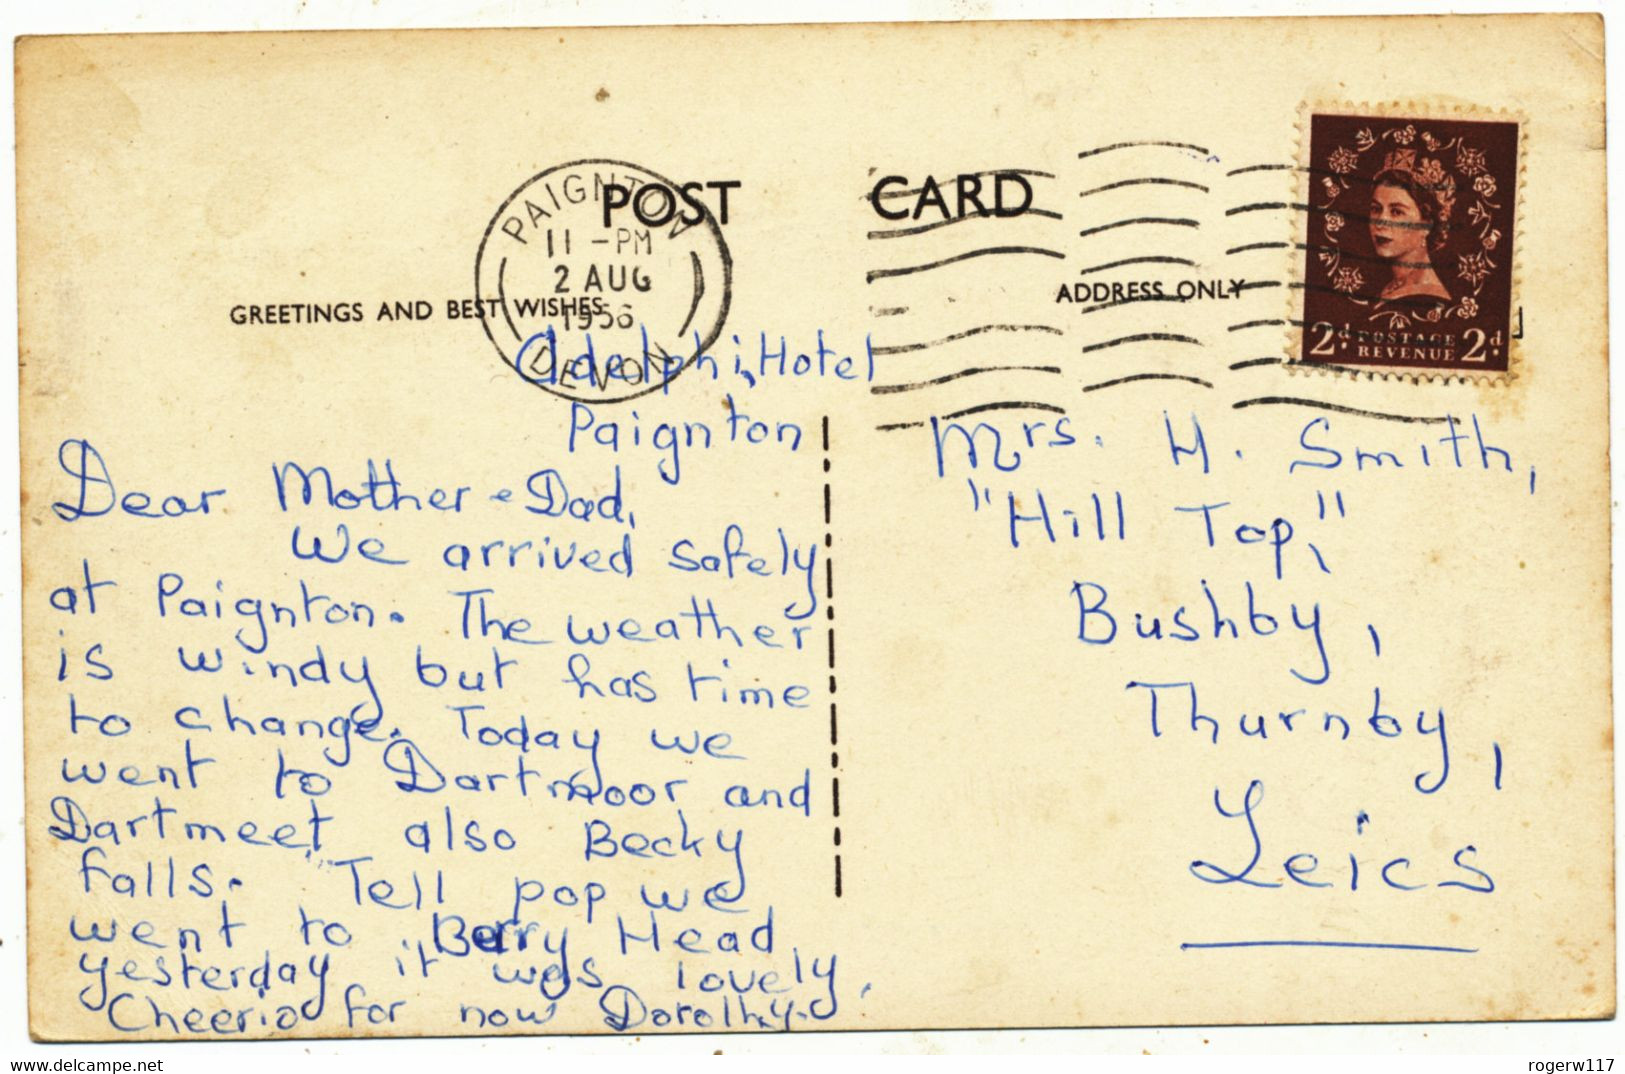 POST CARD
PAIGNTON
11 - PM
2 AUG
1956
DEVON
GREETINGS AND BEST WISHES
ADDRESS ONLY
2d POSTAGE 2d
REVENUE
Adelphi, Hotel
Paignton
Dear Mother & Dad,
We arrived safely
at Paignton. The weather
is windy but has time
to change. Today we
went to Dartmoor and
Dartmeet also Becky
Falls. Tell pop we
went to Berry Head
yesterday it was lovely,
Cheerio for now Dorothy.
Mrs. H. Smith,
"Hill Top,"
Bushby,
Thurnby,
Leics
www.delcampe.net
rogerw117